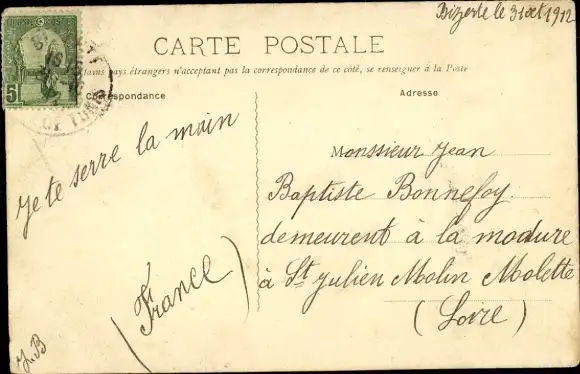 Bizerte le 31 oct 1912
TUNISIE
5
CARTE POSTALE
tains pays étrangers n'acceptant pas la correspondance de ce côté, se renseigner à la Poste
Correspondance
Adresse
Je te serre la main
Monsieur Jean
Baptiste Bonnefoy
demeurent à la modure
à St Julien Molin Molette
(Loire)
(France)
J.B